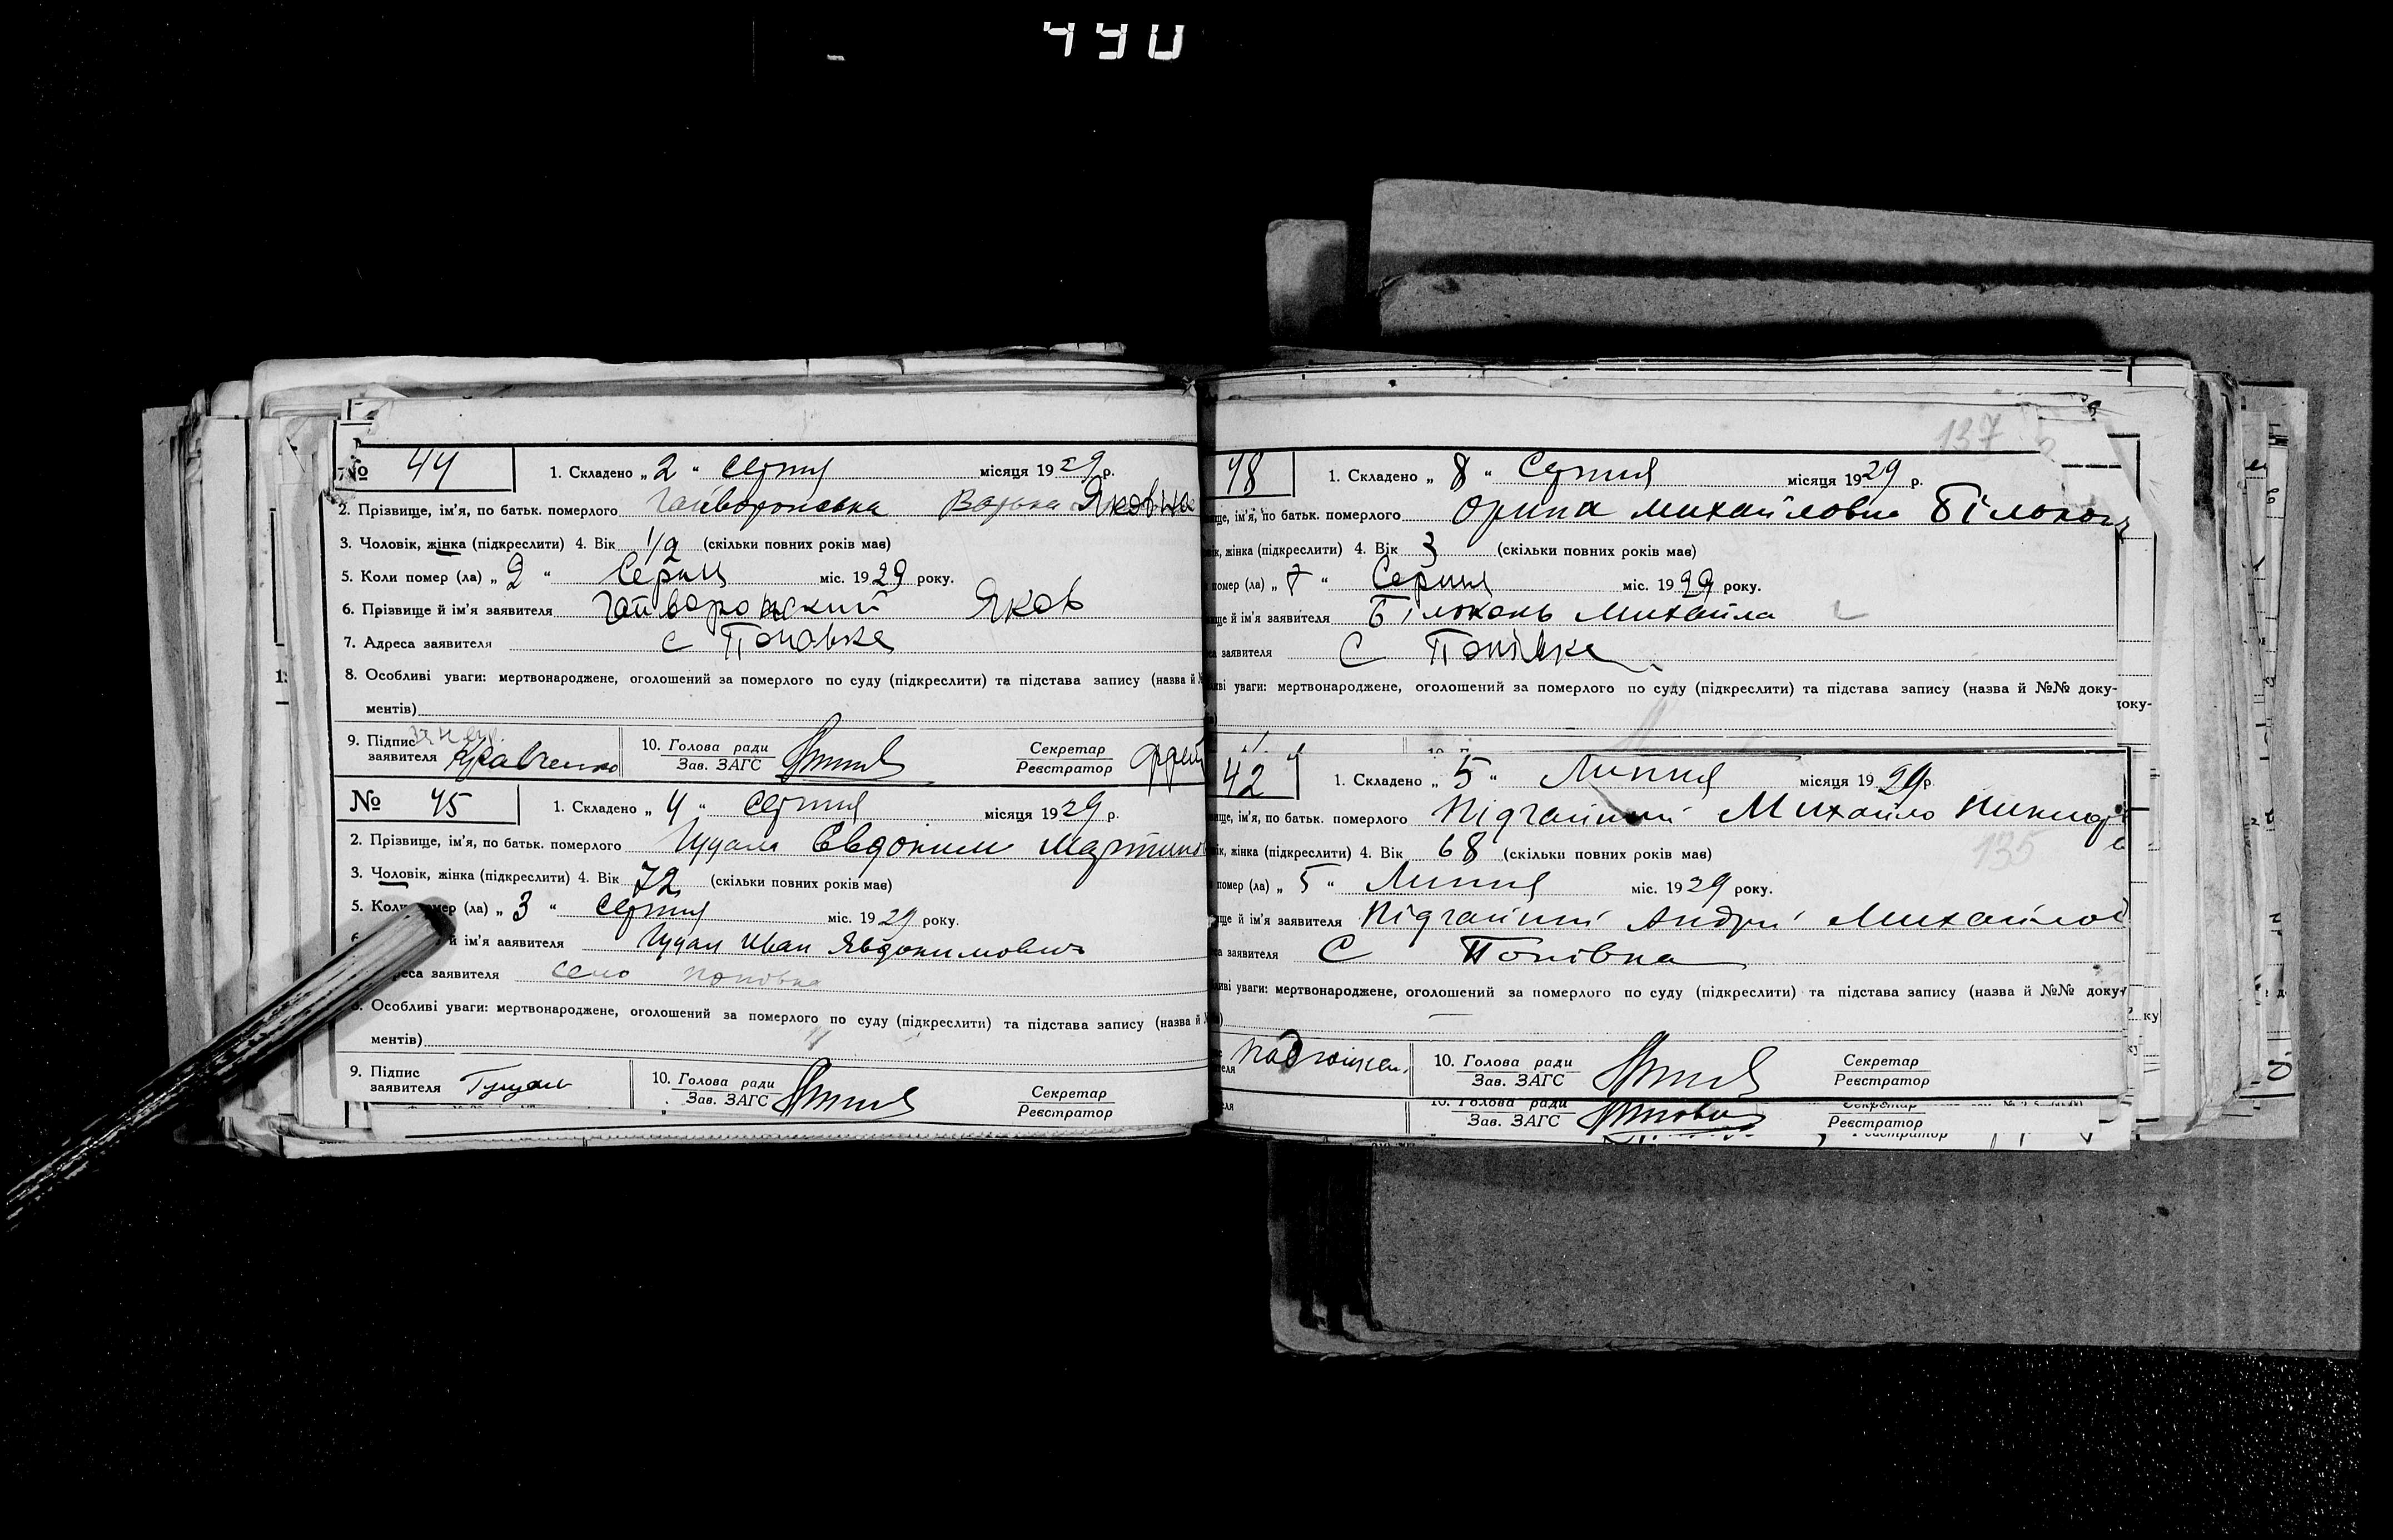 490
№ 44 1. Складено „ 2 “ Серпня місяця 1929 р.
2. Прізвище, ім'я, по батьк. померлого Гайворонська Варька Яковна
3. Чоловік, жінка (підкреслити) 4. Вік 1/2 (скільки повних років має)
5. Коли помер (ла) „ 2 “ Серпня міс. 1929 року.
6. Прізвище й ім'я заявителя Гайворонский Яков
7. Адреса заявителя с Поповка
8. Особливі уваги: мертвонароджене, оголошений за померлого по суду (підкреслити) та підстава запису (назва й №
ментів)
9. Підпис заявителя Кравченко 10. Голова ради Зав. ЗАГС Секретар Реєстратор
№ 45 1. Складено „ 4 “ Серпня місяця 1929 р.
2. Прізвище, ім'я, по батьк. померлого Євдоким Мартинов
3. Чоловік, жінка (підкреслити) 4. Вік 72 (скільки повних років має)
5. Коли помер (ла) „ 3 “ Серпня міс. 1929 року.
й ім'я заявителя Иван Явдокимович
реса заявителя село поповка
8. Особливі уваги: мертвонароджене, оголошений за померлого по суду (підкреслити) та підстава запису (назва й №
ментів)
9. Підпис заявителя 10. Голова ради Зав. ЗАГС Секретар Реєстратор
137
48 1. Складено „ 8 “ Серпня місяця 1929 р.
ім'я, по батьк. померлого Орина Михайловна Білоконь
жінка (підкреслити) 4. Вік 3 (скільки повних років має)
помер (ла) „ 7 “ Серпня міс. 1929 року.
й ім'я заявителя Білоконь Михайла
заявителя С Попівка
уваги: мертвонароджене, оголошений за померлого по суду (підкреслити) та підстава запису (назва й №№ доку-
доку-
42 1. Складено „ 5 “ Липня місяця 1929 р.
ім'я, по батьк. померлого Підгайний Михайло
135
жінка (підкреслити) 4. Вік 68 (скільки повних років має)
помер (ла) „ 5 “ Липня міс. 1929 року.
й ім'я заявителя Підгайний Андрій Михайлов
заявителя С Попівка
уваги: мертвонароджене, оголошений за померлого по суду (підкреслити) та підстава запису (назва й №№ доку-
10. Голова ради Зав. ЗАГС Секретар Реєстратор
10. Голова ради Зав. ЗАГС Секретар Реєстратор